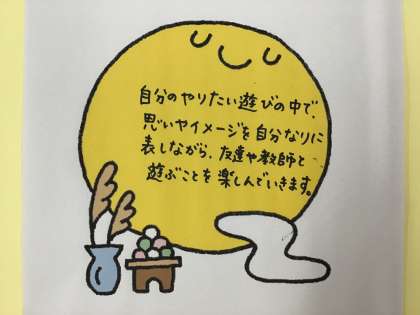 自分のやりたい遊びの中で、
思いやイメージを自分なりに
表しながら、友達や教師と
遊ぶことを楽しんでいきます。